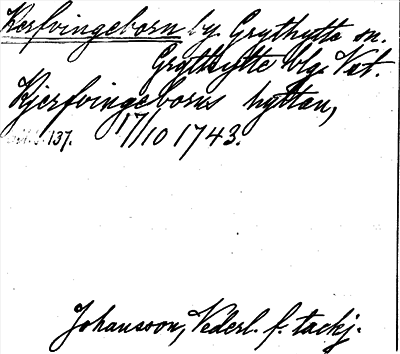 Kerfvingeborn by. Grythytta sn.
Grythytte blg. Vst.
Kjerfvingeborns hyttan,
137. 17/10 1743.
Johansson, Vederl. f. tackj.